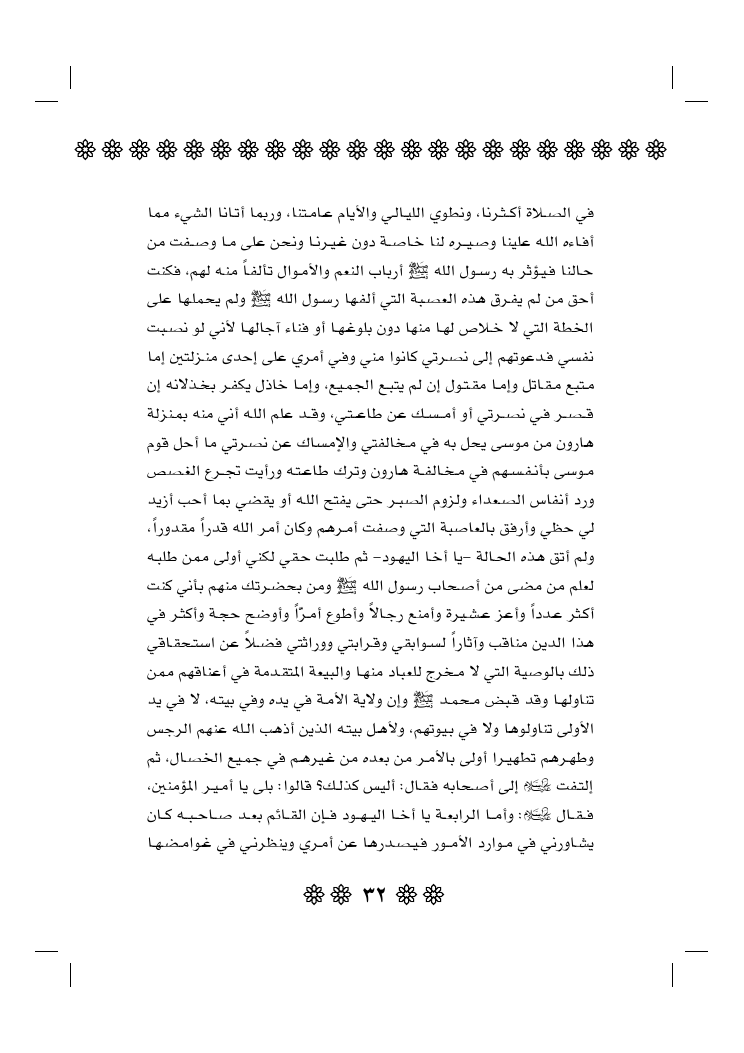 في الصلاة أكثرنا، ونطوي الليالي والأيام عامتنا، وربما أتانا الشيء مما
أفاءه الله علينا وصيره لنا خاصة دون غيرنا ونحن على ما وصفت من
حالنا فيؤثر به رسول الله ﷺ أرباب النعم والأموال تألفاً منه لهم، فكنت
أحق من لم يفرق هذه العصبة التي ألفها رسول الله ﷺ ولم يحملها على
الخطة التي لا خلاص لها منها دون بلوغها أو فناء آجالها لأني لو نصبت
نفسي فدعوتهم إلى نصرتي كانوا مني وفي أمري على إحدى منزلتين إما
متبع مقاتل وإما مقتول إن لم يتبع الجميع، وإما خاذل يكفر بخذلانه إن
قصر في نصرتي أو أمسك عن طاعتي، وقد علم الله أني منه بمنزلة
هارون من موسى يحل به في مخالفتي والإمساك عن نصرتي ما أحل قوم
موسى بأنفسهم في مخالفة هارون وترك طاعته ورأيت تجرع الغصص
ورد أنفاس الصعداء ولزوم الصبر حتى يفتح الله أو يقضي بما أحب أزيد
لي حظي وأرفق بالعاصبة التي وصفت أمرهم وكان أمر الله قدراً مقدوراً،
ولم أتق هذه الحالة –يا أخا اليهود– ثم طلبت حقي لكني أولى ممن طلبه
لعلم من مضى من أصحاب رسول الله ﷺ ومن بحضرتك منهم بأني كنت
أكثر عدداً وأعز عشيرة وأمنع رجالاً وأطوع أمرّاً وأوضح حجة وأكثر في
هذا الدين مناقب وآثاراً لسوابقي وقرابتي ووراثتي فضلاً عن استحقاقي
ذلك بالوصية التي لا مخرج للعباد منها والبيعة المتقدمة في أعناقهم ممن
تناولها وقد قبض محمد ﷺ وإن ولاية الأمة في يده وفي بيته، لا في يد
الأولى تناولوها ولا في بيوتهم، ولأهل بيته الذين أذهب الله عنهم الرجس
وطهرهم تطهيرا أولى بالأمر من بعده من غيرهم في جميع الخصال، ثم
إلتفت عليه السلام إلى أصحابه فقال: أليس كذلك؟ قالوا: بلى يا أمير المؤمنين،
فقال عليه السلام: وأما الرابعة يا أخا اليهود فإن القائم بعد صاحبه كان
يشاورني في موارد الأمور فيصدرها عن أمري وينظرني في غوامضها
٣٢